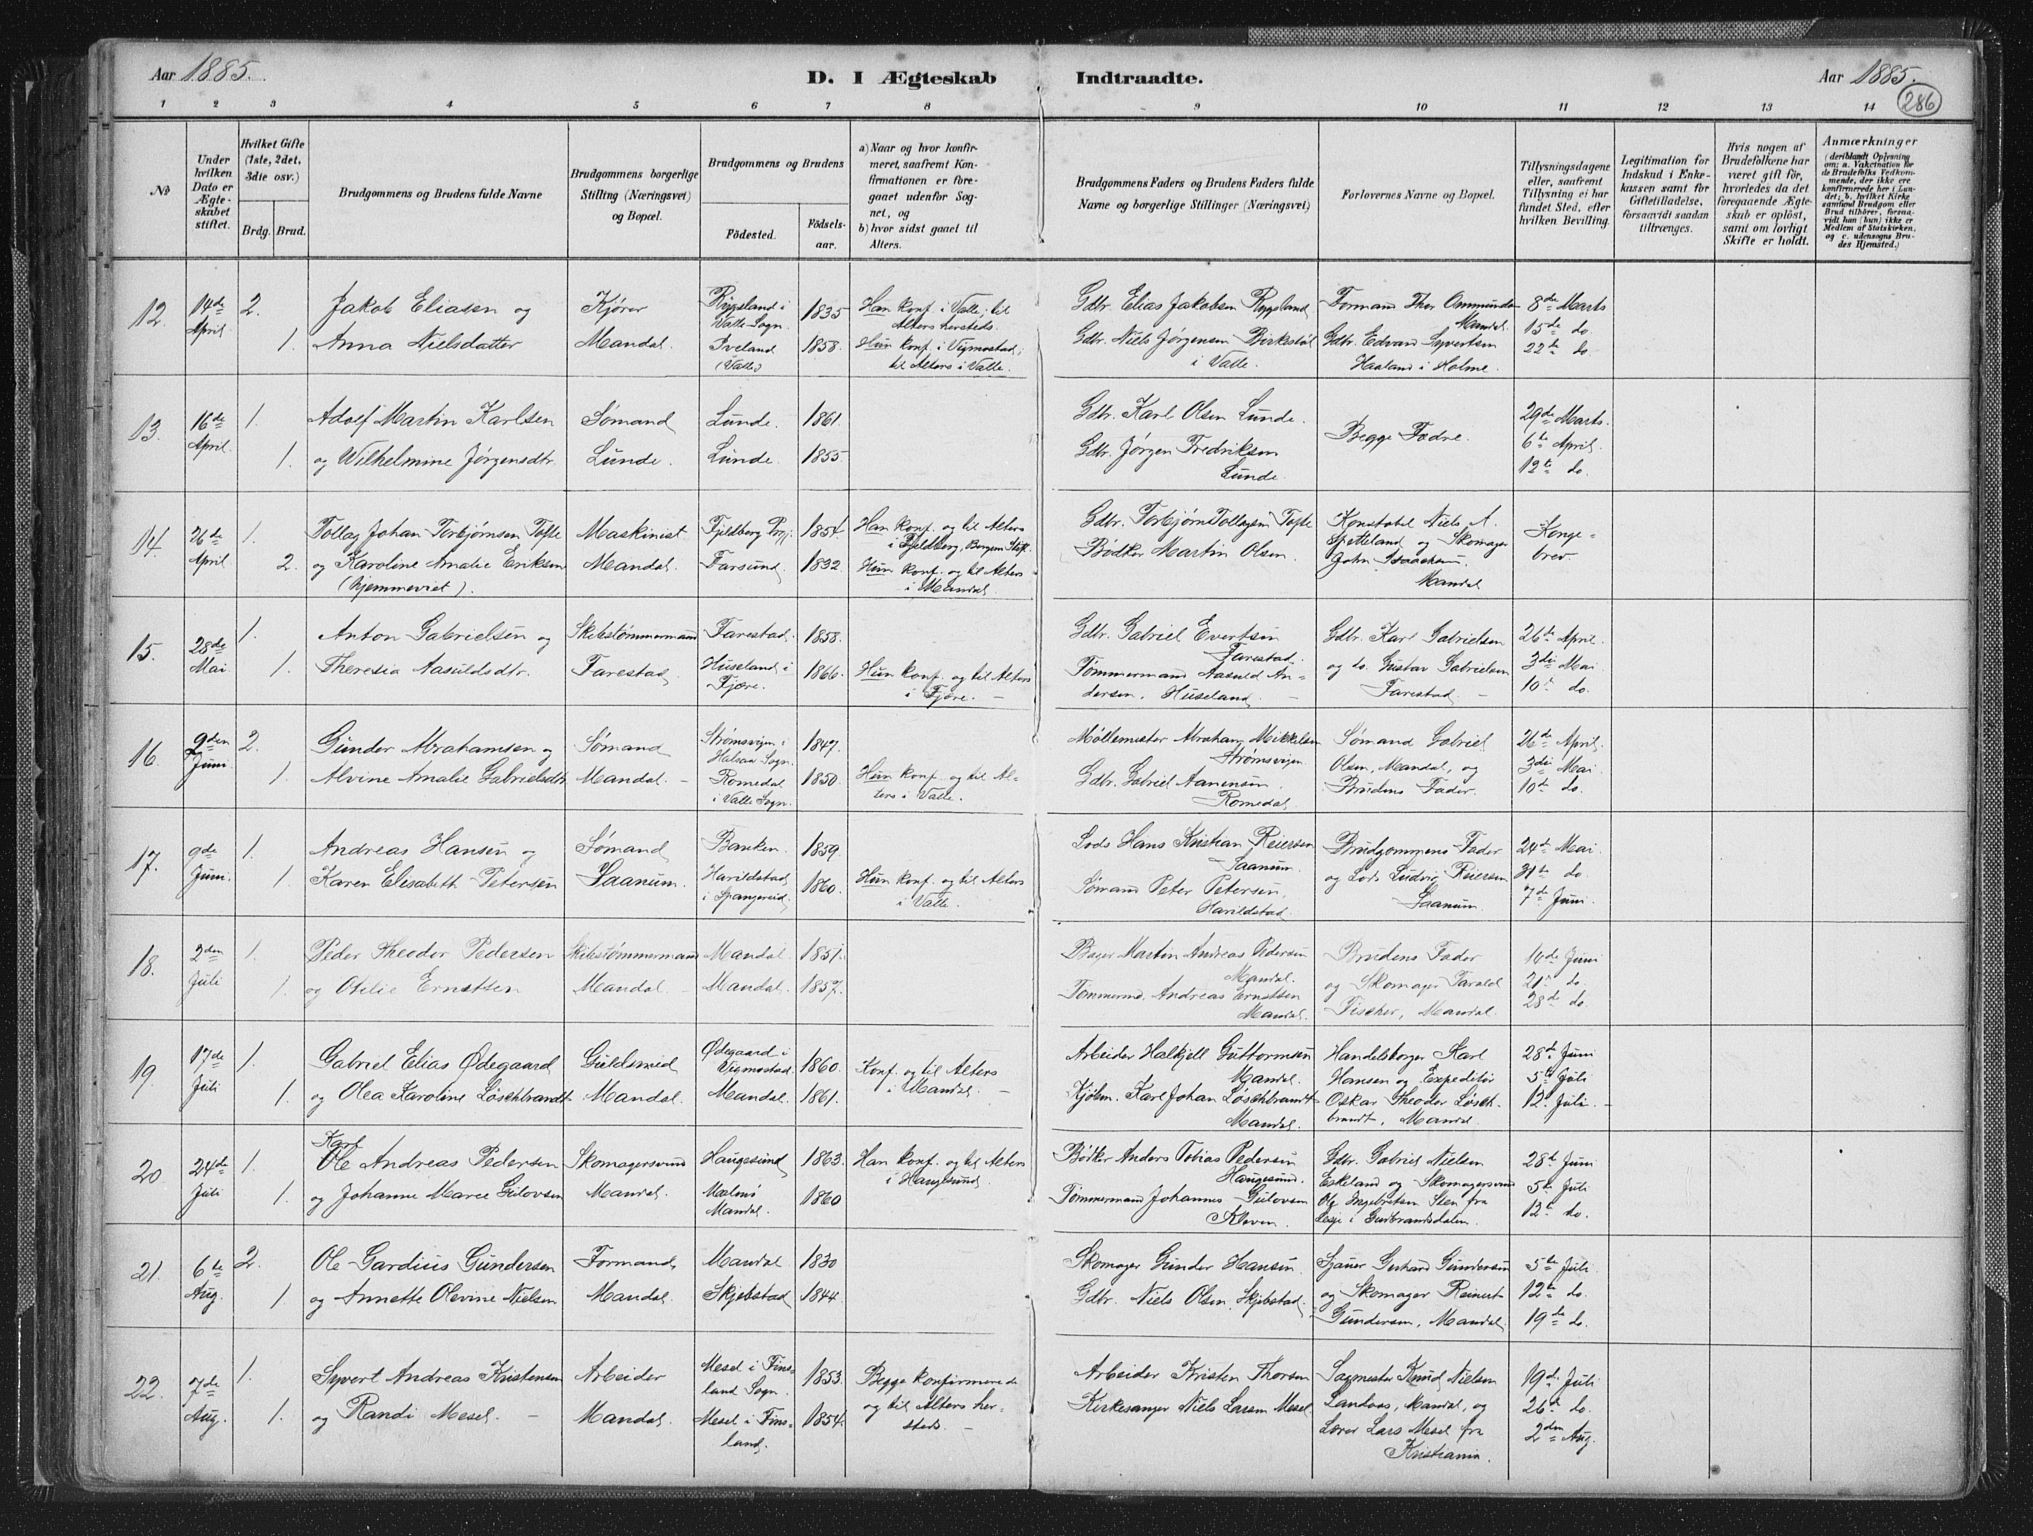 Aar 1885.
D. I Ægteskab Indtraadte.
Aar 1885.
286
1 2 3 4 5 6 7 8 9 10 11 12 13 14
No
Under hvilken Dato er Ægteskabet stiftet.
Hvilket Gifte (1ste, 2det, 3die osv.)
Brdg. Brud.
Brudgommens og Brudens fulde Navne
Brudgommens borgerlige Stilling (Næringsvei) og Bopæl.
Brudgommens og Brudens
Födested.
Födselsaar.
a) Naar og hvor konfirmeret, saafremt Konfirmationen er foregaaet udenfor Sognet, og
b) hvor sidst gaaet til Alters.
Brudgommens Faders og Brudens Faders fulde Navne og borgerlige Stillinger (Næringsvei)
Forlovernes Navne og Bopæl.
Tillysningsdagene eller, saafremt Tillysning ei har fundet Sted, efter hvilken Bevilling.
Legitimation for Indskud i Enkekassen samt for Giftetilladelse, forsaavidt saadan tiltrænges.
Hvis nogen af Brudefolkene har været gift för, hvorledes da det foregaaende Ægteskab er oplöst, samt om lovligt Skifte er holdt.
Anmærkninger
(deriblandt Oplysning om: a. Vakcination for de Brudefolks Vedkommende, der ikke ere konfirmerede her i Landet; b. hvilket Kirkesamfund Brudgom eller Brud tilhörer, forsaavidt han (hun) ikke er Medlem af Statskirken, og c. udensogns Brudes Hjemsted.)
12. 14de April 2. Jakob Eliasen og Kjører Rygsland i Valle Sogn. 1835 Han konf. i Valle; til Alters hersteds. Gdbr. Elias Jakobsen Rygsland Formand Thor Ommundsen Mandal 8de Marts
1. Anna Nielsdatter Mandal. Iveland (Valle) 1858. Hun konf. i Vigmostad, til Alters i Valle. Gdbr. Niels Jørgensen Birkestøl i Valle. Gdbr. Edvard Syvertsen Haaland i Holme. 15de do. 22de do.
13. 16de April. 1. Adolf Martin Karlsen Sømand Lunde. 1861. Gdbr. Karl Olsen Lunde. Begge Fædre. 29de Marts.
1. og Wilhelmine Jørgensdtr. Lunde. Lunde. 1855 Gdbr. Jørgen Fredriksen Lunde. 6te April. 12te do.
14. 26de April 1. Tollag Johan Torbjørnsen Tofte Maskinist Fjeldberg Prgj. 1854. Han konf. og til Alters i Fjeldberg, Bergen Stift. Gdbr. Torbjørn Tollagsen Tofte Konstabel Niels A. Spetteland og Skomager John Isaachsen Mandal Kongebrev
2. og Karoline Amalie Eriksen (hjemmeviet). Mandal. Farsund. 1832. Hun konf. og til Alters i Mandal. Bødker Martin Olsen.
15. 28de Mai 1. Anton Gabrielsen og Skibstømmermand Farestad. 1858. Gdbr. Gabriel Evertsen Farestad. Gdbr. Karl Gabrielsen 26de April.
1. Theresia Aasuldsdtr. Farestad. Huseland i Fjære. 1866. Hun konf. og til Alters i Fjære. Tømmermand Aasuld Andersen, Huseland. og do. Gustav Gabrielsen Farestad. 3die Mai 10de do.
16. 9den Juni 2. Gunder Abrahamsen og Sømand Strømsvigen i Halsaa Sogn. 1847. Møllemester Abraham Mikkelsen Strømsvigen Sømand Gabriel Olsen, Mandal, og Brudens Fader. 26de April.
1. Alvine Amalie Gabrielsdtr. Mandal. Romedal i Valle Sogn. 1850. Hun konf. og til Alters i Valle. Gdbr. Gabriel Aanensen Romedal. 3die Mai. 10de do.
17. 9de Juni. 1. Andreas Hansen og Sømand Banken. 1859. Lods Hans Kristian Reiersen Saanum. Brudgommens Fader 24de Mai.
1. Karen Elisabeth Petersen Saanum. Harildstad i Spangereid. 1860. Hun konf. og til Alters i Valle. Sømand Peter Petersen, Harildstad. og Lods Ludvig Reiersen Saanum. 31te do. 7de Juni.
18. 2den Juli 1. Peder Theodor Pedersen Skibstømmermand Mandal. 1851. Bager Martin Andreas Pedersen Mandal. Brudens Fader 16de Juni
1. og Otelie Ernstsen Mandal. Mandal. 1857. Tømmermd. Andreas Ernstsen Mandal. og Skomager Tarald Fischer, Mandal. 21de do. 28de do.
19. 17de Juli 1. Gabriel Elias Ødegaard Guldsmed Ødegaard i Vigmostad. 1860. Konf. og til Alters i Mandal. Arbeider Halkjell Guttormsen Mandal. Handelsborger Karl Hansen og Expeditør 28de Juni
1. og Olea Karoline Löschbrandt Mandal. Mandal. 1861. Kjøbm. Karl Johan Löschbrandt Mandal. Oskar Theodor Löschbrandt, Mandal 5te Juli 12te Juli.
20. 24de Juli 1. Karl Ole Andreas Pedersen Skomagersvend Haugesund 1863. Han konf. og til Alters i Haugesund. Bødker Anders Tobias Pedersen Haugesund. Gdbr. Gabriel Nielsen Eskeland og Skomagersvend 28de Juni
1. og Johanne Marie Gulovsen Mandal. Malmø Mandal. 1860 Tømmermand Johannes Gulovsen Kleven. Ole Ingebretsen Sten fra Lesje i Gudbrandsdalen. 5te Juli 12te do.
21. 6te Aug. 2. Ole Gardius Gundersen Formand Mandal 1830 Skomager Gunder Hansen. Sjauer Gerhard Gundersen 5te Juli
1. og Annette Olevine Nielsen Mandal. Skjebstad 1844. Gdbr. Niels Olsen, Skjebstad. og Skomager Reinert Gundersen, Mandal. 12te do. 19de do.
22. 7de Aug. 1. Syvert Andreas Kristensen Arbeider Mesel i Finsland Sogn. 1853. Begge konfirmerede og til Alters hersteds. Arbeider Kristen Thorsen Sagmester Knud Nielsen 19de Juli
1. og Randi Mesel. Mandal. Mesel i Finsland. 1854. Kirkesanger Niels Larsen Mesel. Landaas, Mandal, og Lærer Lars Mesel fra Kristiania. 26de do. 2den Aug.